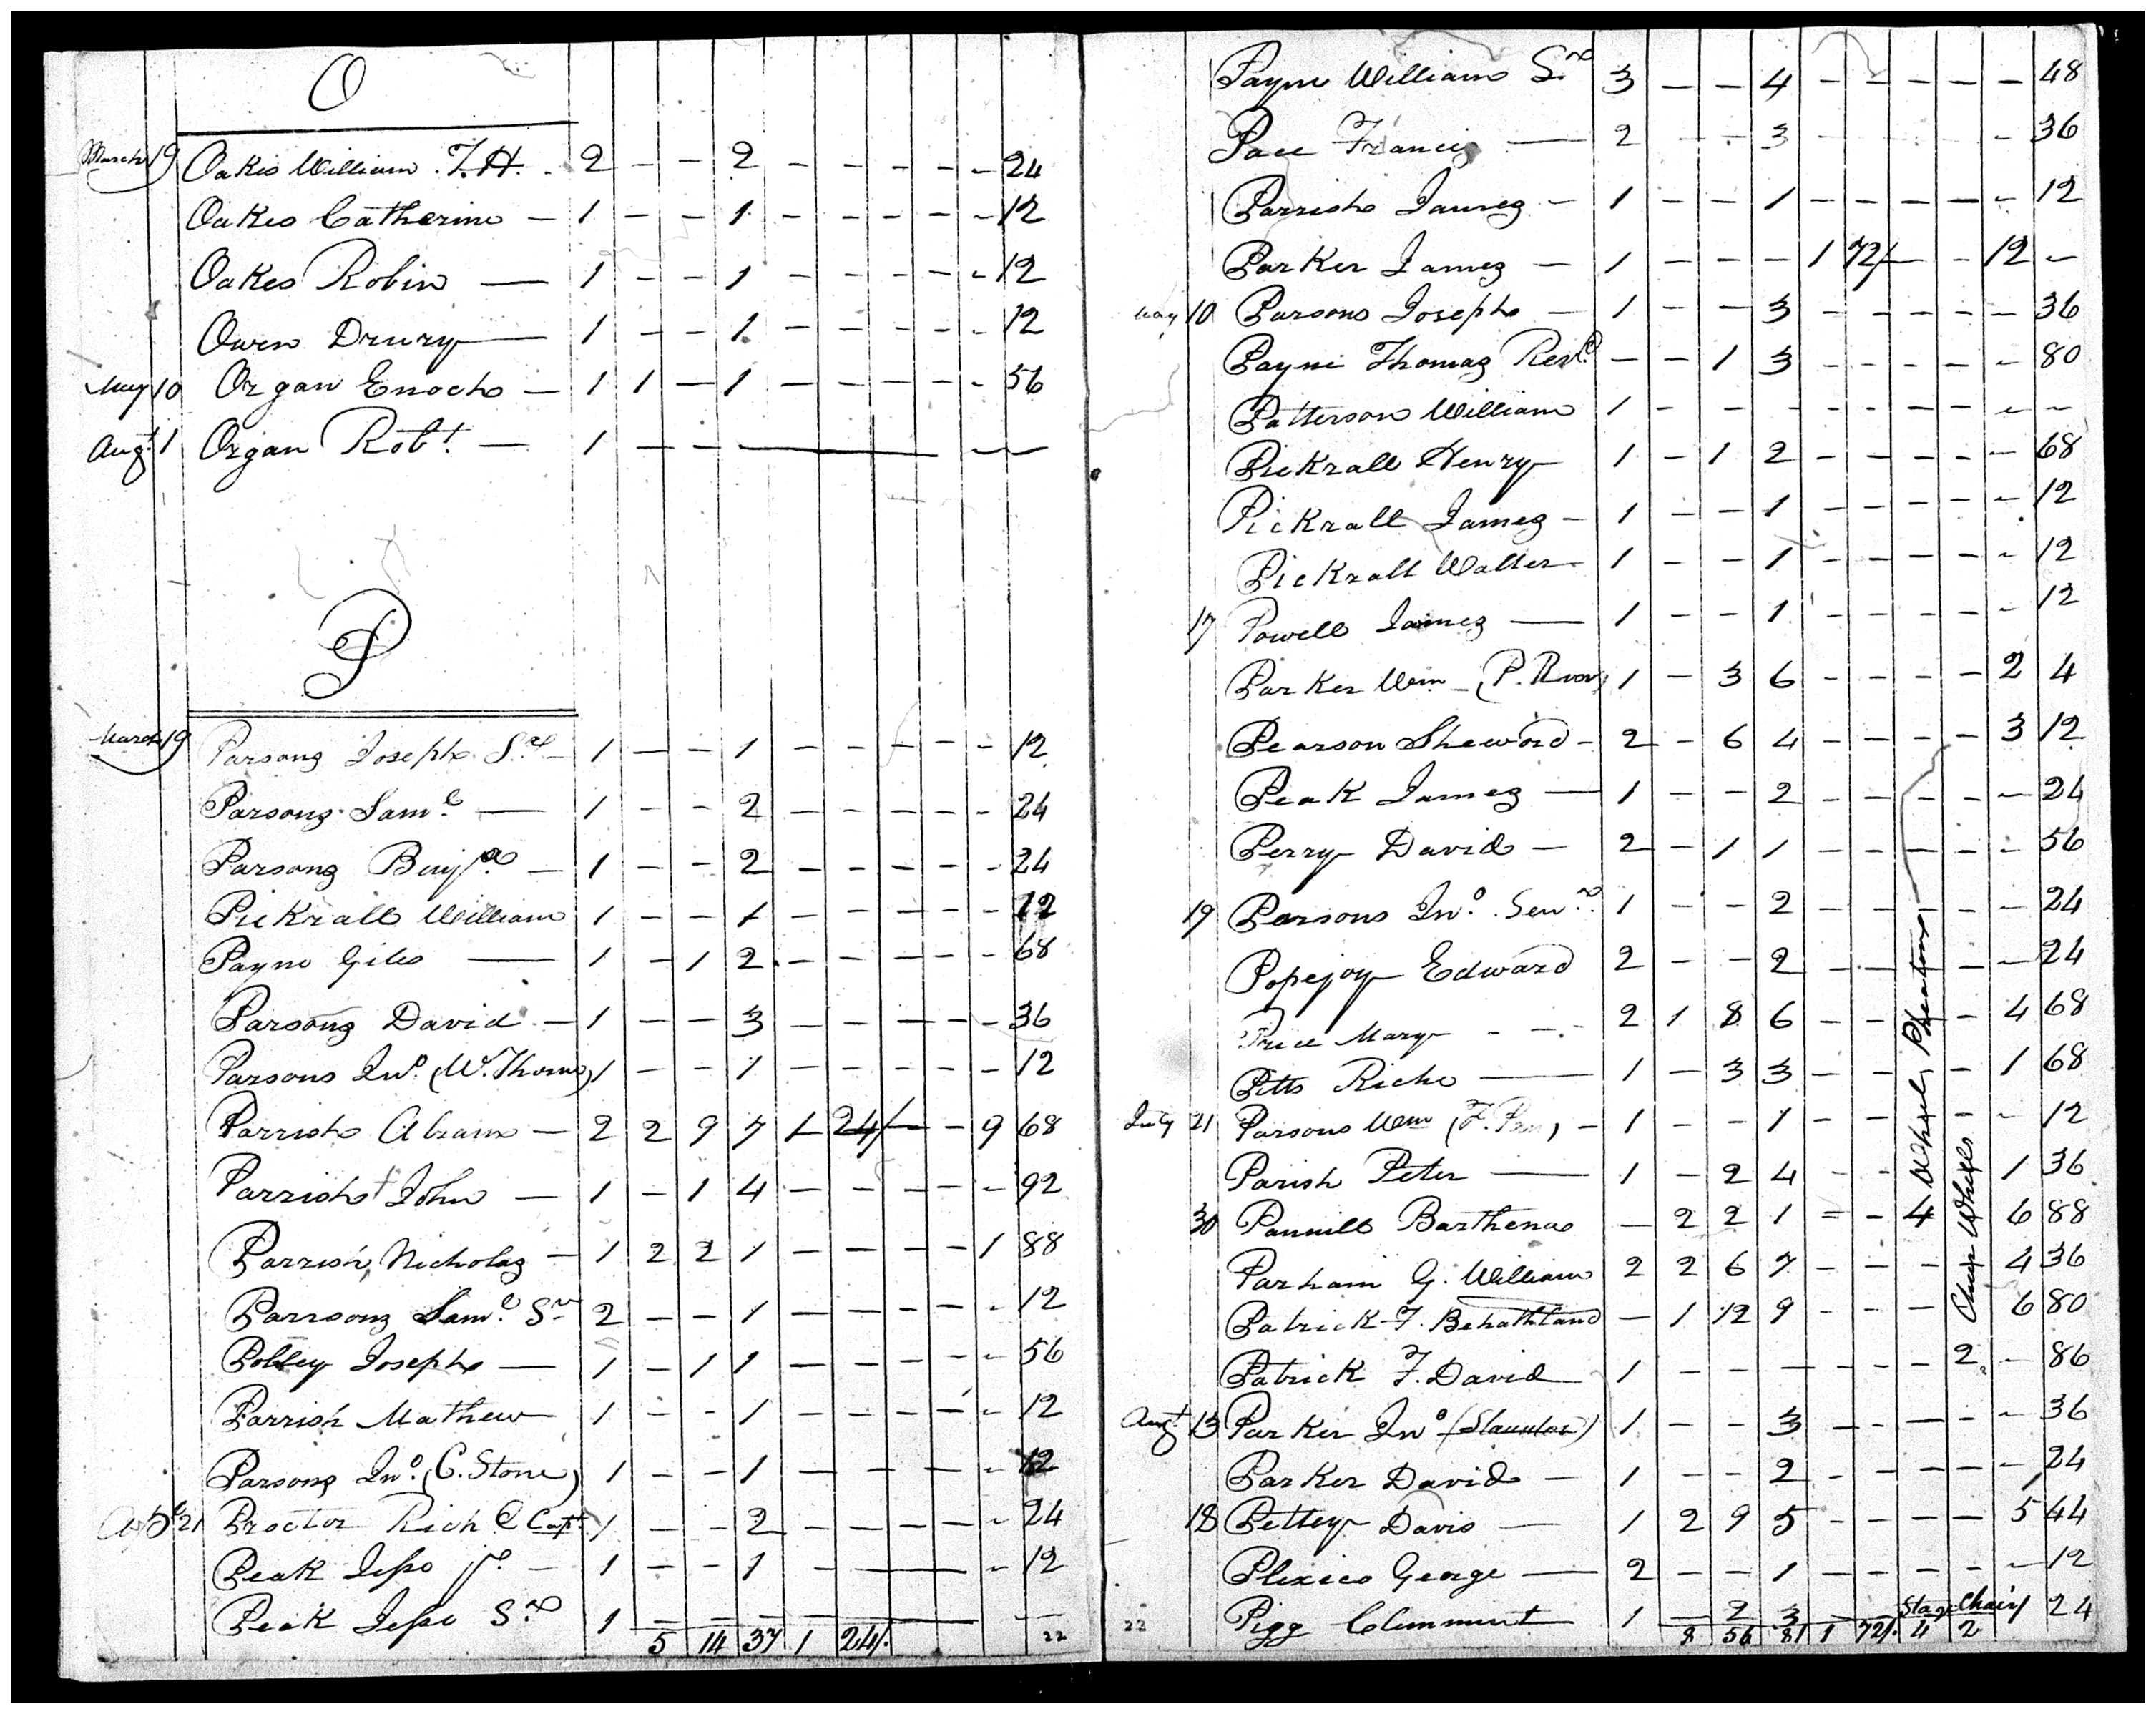 O
March 19 Oakes William T.H. - 2 - - 2 - - - - - 24
Oakes Catherine - 1 - - 1 - - - - - 12
Oakes Robin — 1 - - 1 - - - - - 12
Owen Drury — 1 - - 1 - - - - - 12
May 10 Organ Enoch - 1 1 - 1 - - - - - 56
Augt 1 Organ Robt. - 1 - - — - -
P
March 19 Parsons Joseph Sr - 1 - - 1 - - - - - 12
Parsons Saml — 1 - - 2 - - - - - 24
Parsons Benja - 1 - - 2 - - - - - 24
Pickrall William 1 - - 1 - - - - - 12
Payne Giles — 1 - 1 2 - - - - - 68
Parsons David - 1 - - 3 - - - - - 36
Parsons Jno. (W. Thoms) 1 - - 1 - - - - - 12
Parrish Abram - 2 2 9 7 1 24/ - - 9 68
Parrish John - 1 - 1 4 - - - - - 92
Parrish, Nicholas - 1 2 2 1 - - - - 1 88
Parrsons Saml Sr 2 - - 1 - - - - - 12
Polley Joseph — 1 - 1 1 - - - - - 56
Parrish Mathew 1 - - 1 - - - - - 12
Parsons Jno. (C. Stone) 1 - - 1 - - - - - 12
21 Proctor Rich Capt. 1 - - 2 - - - - - 24
Peak Jesse Jr. - 1 - - 1 - — - 12
Peak Jesse Sr 1 - - - - — -
5 14 37 1 24/. 22
Payne William Sr 3 - - 4 - - - - - 48
Pace Francis — 2 - - 3 - - - - - 36
Parrish James - 1 - - 1 - - - - - 12
Parker James - 1 - - - 1 72/ - - 12 -
May 10 Parsons Joseph - 1 - - 3 - - - - - 36
Payne Thomas Revd. - - 1 3 - - - - - 80
Patterson William 1 - - - - - - - - -
Pickrall Henry 1 - 1 2 - - - - - 68
Pickrall James - 1 - - 1 - - - - - 12
Pickrall Walter - 1 - - 1 - - - - - 12
17 Powell James — 1 - - 1 - - - - - 12
Parker Wm (P. River) 1 - 3 6 - - - - 2 4
Pearson Sheword - 2 - 6 4 - - - - 3 12
Peak James — 1 - - 2 - - - - - 24
Perry David - 2 - 1 1 - - - - - 56
19 Parsons Jno. Senr. 1 - - 2 - - - - - 24
Popejoy Edward 2 - - 2 - - - - - 24
Price Mary - - - 2 1 8 6 - - - 4 68
Pitts Richd — 1 - 3 3 - - - 1 68
July 21 Parsons Wm - 1 - - 1 - - - - 12
Parish Peter — 1 - 2 4 - - 1 36
30 Pannill Barthena - 2 2 1 - - 4 6 88
4 Wheel, Pheatons
Chair Wheels
Parham G. William 2 2 6 7 - - - 4 36
Patrick F. Behathland - 1 12 9 - - - 6 80
Patrick F. David 1 - - - - - - 2 - 86
Augt 13 Parker Jno (Staunton) 1 - - 3 - - - - - 36
Parker David - 1 - - 2 - - - - - 24
18 Pettey Davis — 1 2 9 5 - - - - 5 44
Plexico George — 2 - - 1 - - - - - 12
22 Pigg Clemment 1 - 2 3 - - Stage Chair 1 24
8 56 81 1 72/. 4 2